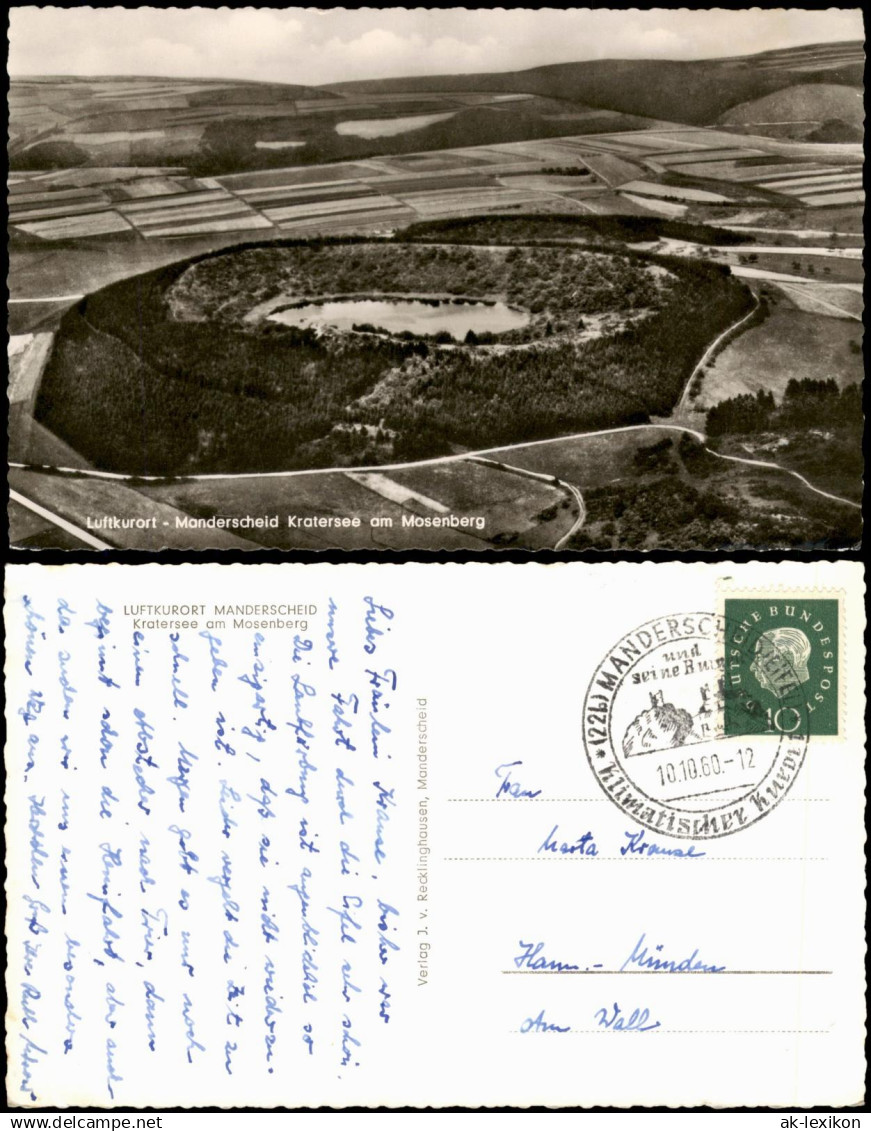 Luftkurort - Manderscheid Kratersee am Mosenberg
LUFTKURORT MANDERSCHEID
Kratersee am Mosenberg
Liebes Fräulein Krause, bisher war
unsere Fahrt durch die Eifel sehr schön.
Die Laubfärbung ist augenblicklich so
einzigartig, daß sie nicht
geben ist. Leider vergeht die Zeit zu
schnell. Morgen geht es nur noch
einen Abstecher nach Trier, dann
beginnt schon die Heimfahrt, aber auch
da suchen wir uns einen besonders
schönen Weg aus. Ihr
Verlag J. v. Recklinghausen, Manderscheid
DEUTSCHE BUNDESPOST
10
(22b) MANDERSCHEID/EIFEL
und
seine Burgen
10.10.60.-12
Klimatischer Kurort
Frau
Marta Krause
Hann.-Münden
Am Wall
ak-lexikon.com